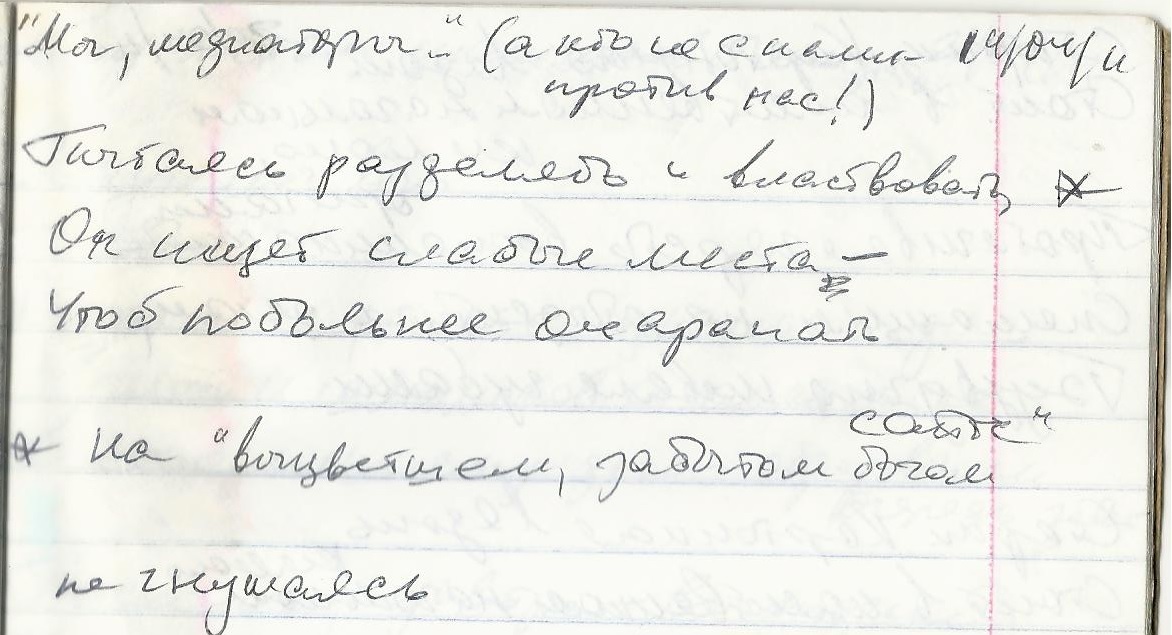 "Мы, медиаторы" (а кто не с нами -
против нас!)
Пытаясь разделять и властвовать *
Он ищет слабые места –
Чтоб побольнее оцарапать
* на "выцветшем, забытом богом
сайте"
не гнушаясь